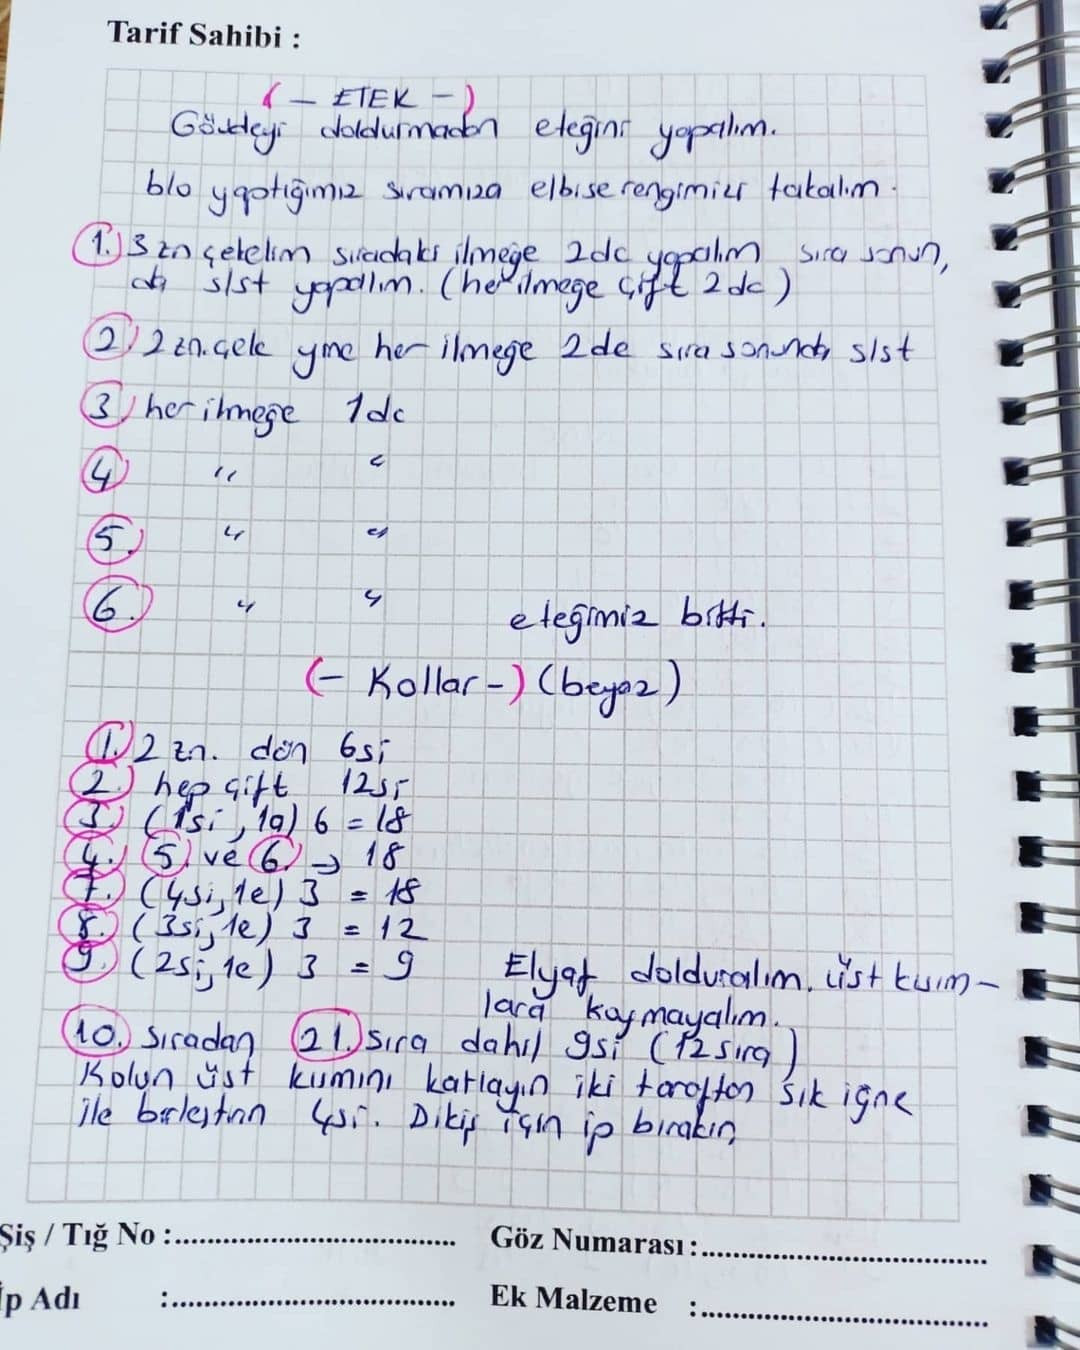 Tarif Sahibi :
(- ETEK -)
Gövdeyi doldurmadan eteğini yapalım.
blo yaptığımız sıramıza elbise rengimizi takalım.
1.) 3 zn çekelim sıradaki ilmeğe 2dc yapalım sıra sonun,
da s/st yapalım. (her ilmeğe çift 2dc)
2.) 2 zn. çek yine her ilmeğe 2dc sıra sonunda s/st
3.) her ilmeğe 1dc
4.) " "
5.) " "
6.) " " eteğimiz bitti.
(- Kollar -) (beyaz)
1.) 2 zn. dön 6si
2.) hep çift 12si
3.) (1si, 1a) 6 = 18
4.) 5.) ve 6.) → 18
7.) (4si, 1e) 3 = 18
8.) (3si, 1e) 3 = 12
9.) (2si, 1e) 3 = 9 Elyaf dolduralım. üst kısım-
lara koymayalım.
10.) sıradan 21.) sıra dahil 9si (12 sıra)
Kolun üst kısmını katlayın iki taraftan sık iğne
ile birleştirin 4si. Dikiş için ip bırakın
Şiş / Tığ No :.......................................... Göz Numarası :..........................................
İp Adı :.......................................... Ek Malzeme :..........................................